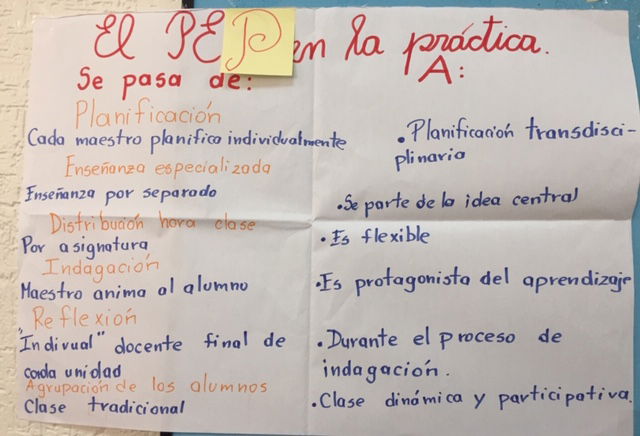 El PEP en la práctica.
Se pasa de:
A:
Planificación
Cada maestro planifica individualmente
• Planificación transdisci-
plinario
Enseñanza especializada
Enseñanza por separado
• Se parte de la idea central
Distribución hora clase
Por asignatura
• Es flexible
Indagación
Maestro anima al alumno
• Es protagonista del aprendizaje
Reflexión
"Indivual" docente final de
cada unidad
• Durante el proceso de
indagación.
Agrupación de los alumnos
Clase tradicional
• Clase dinámica y participativa.